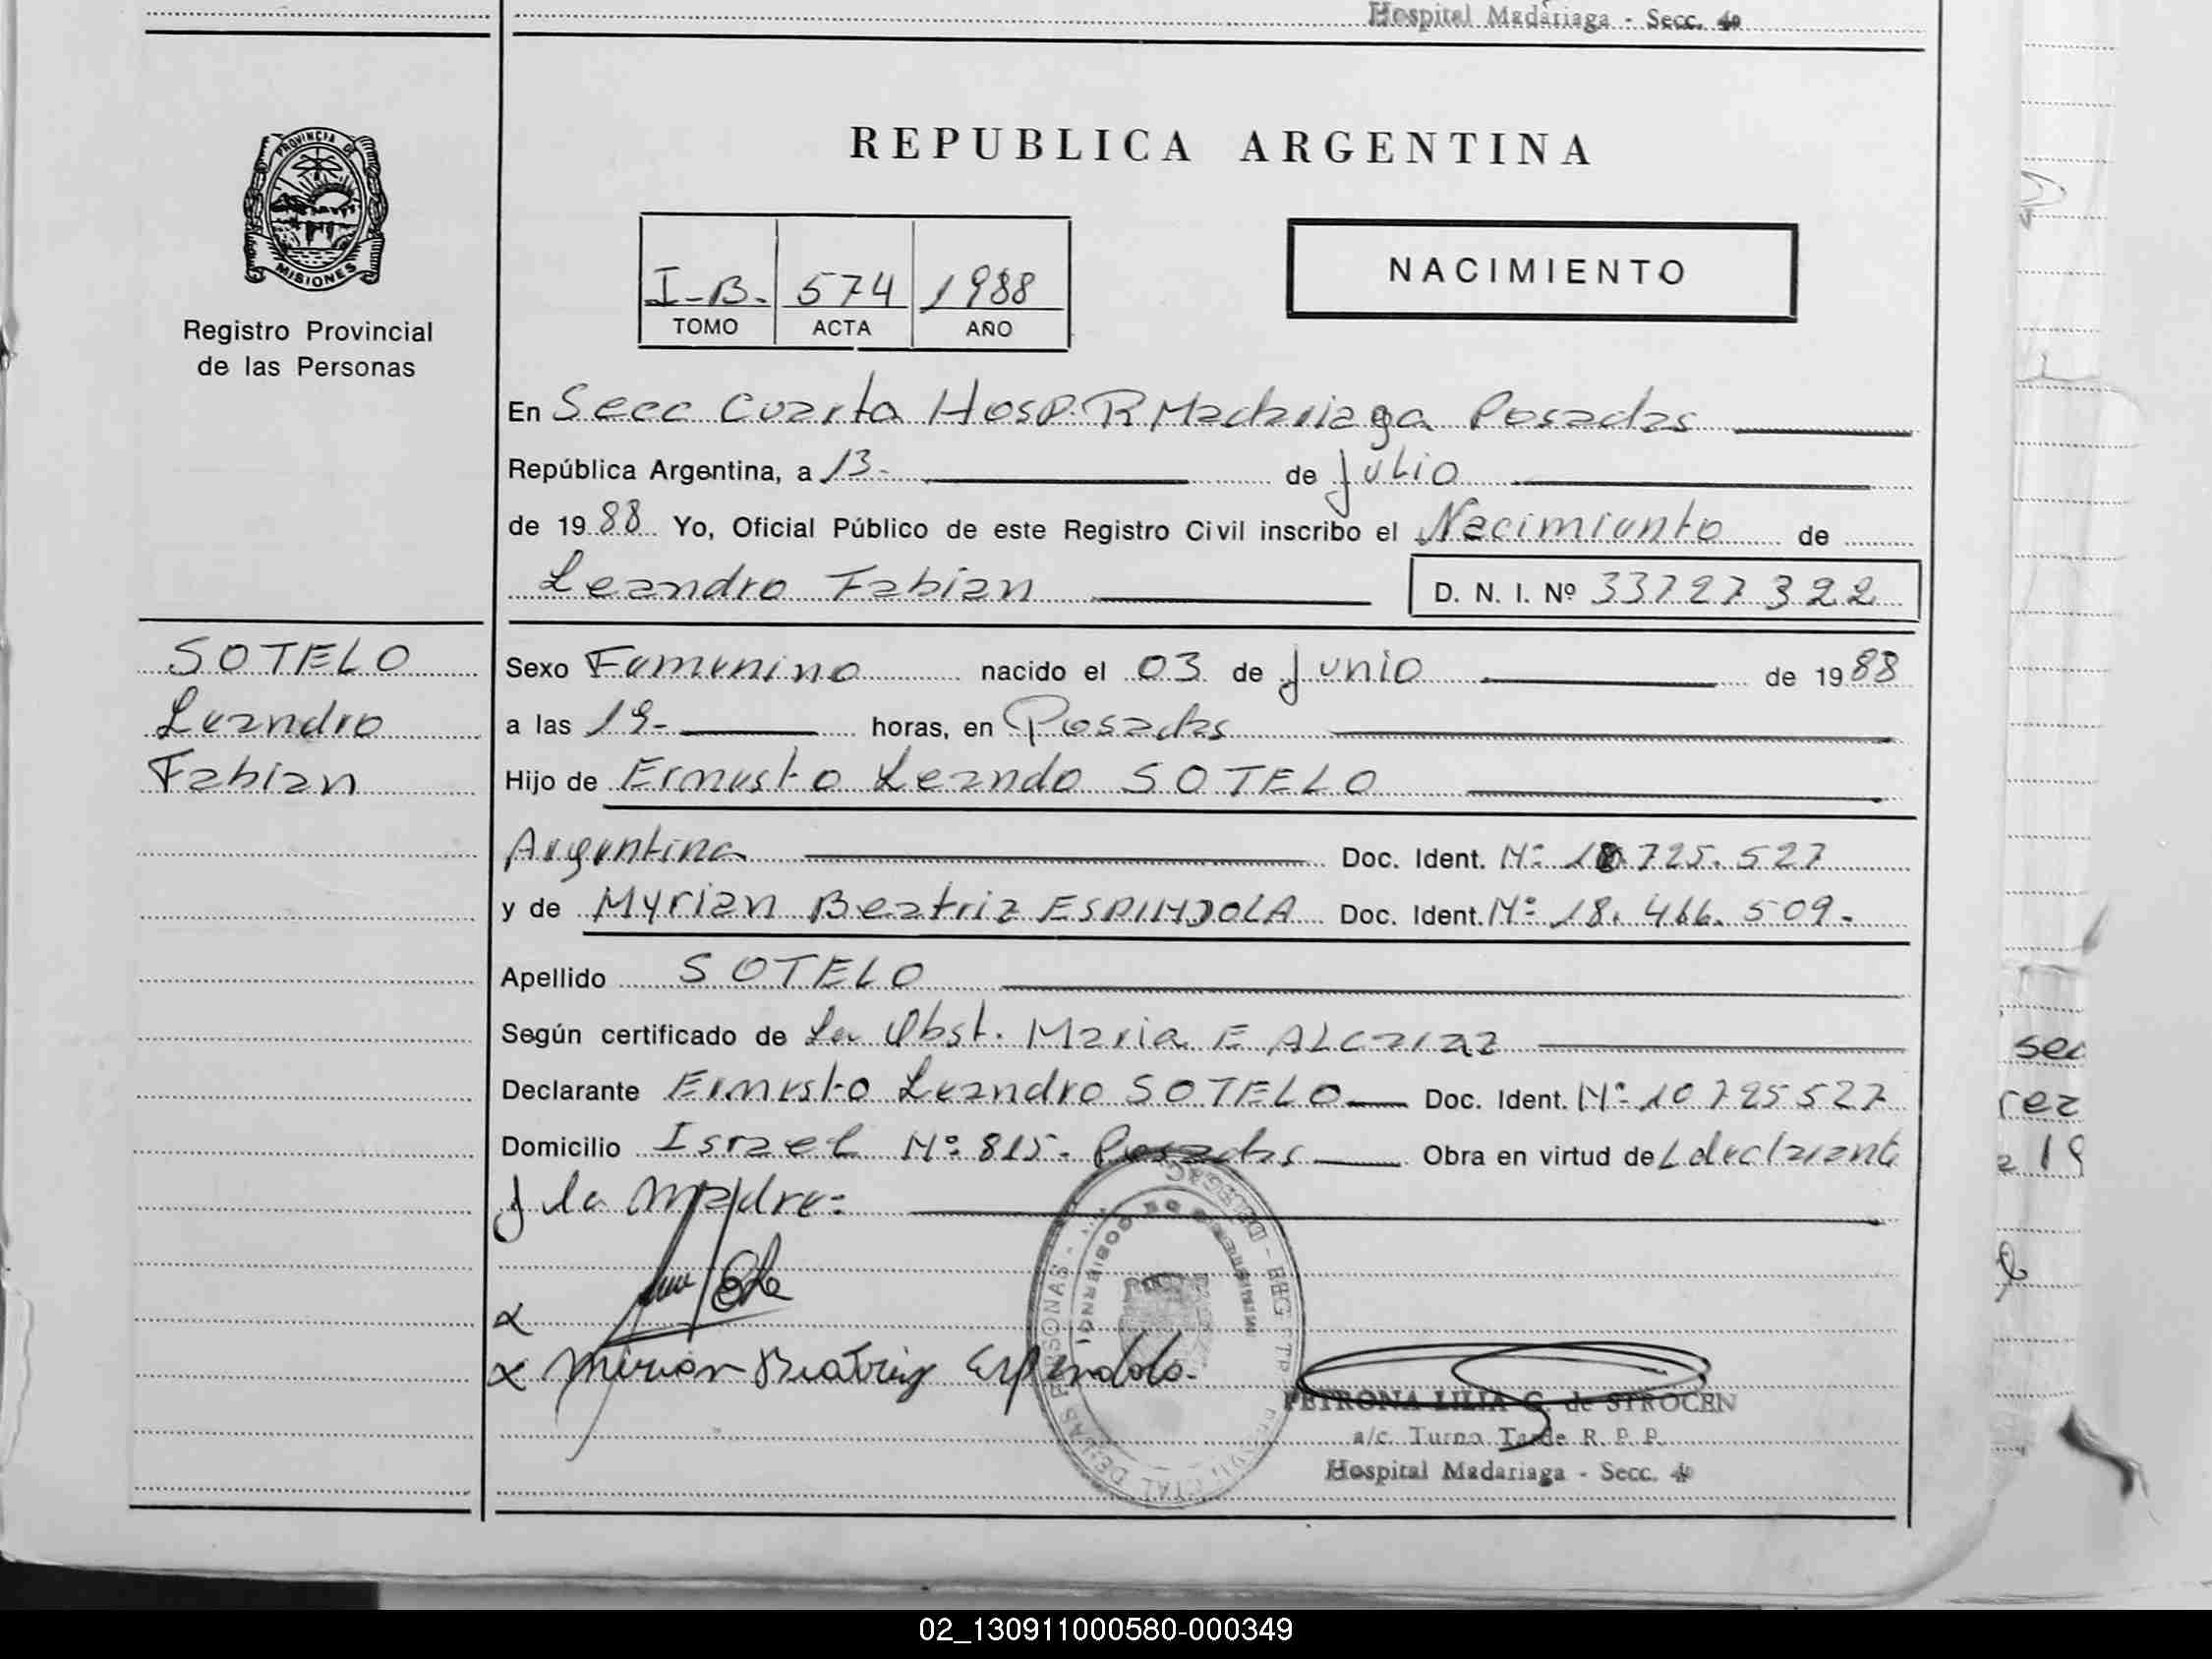 Hospital Madariaga - Secc. 4º
PROVINCIA DE
MISIONES
Registro Provincial
de las Personas
REPUBLICA ARGENTINA
I-B. 574 1988
TOMO ACTA AÑO
NACIMIENTO
En Secc Cuarta Hosp. R Madariaga Posadas
República Argentina, a 13- de Julio
de 1988 Yo, Oficial Público de este Registro Civil inscribo el Nacimiento de
Leandro Fabian D. N. I. Nº 33727322
SOTELO
Leandro
Fabian
Sexo Femenino nacido el 03 de Junio de 1988
a las 19- horas, en Posadas
Hijo de Ernesto Leando SOTELO
Argentina Doc. Ident. Nº 10.725.527
y de Myrian Beatriz ESPINDOLA Doc. Ident. Nº 18.466.509-
Apellido SOTELO
Según certificado de La Obst. Maria E ALCaraz
Declarante Ernesto Leandro SOTELO Doc. Ident. Nº 10725527
Domicilio Israel Nº 815- Posadas Obra en virtud de L declarante
y la Madre:
x
x Mirian Beatriz Espindola.
PETRONA LILIA G. de STROCEN
a/c. Turno Tarde R. P. P.
Hospital Madariaga - Secc. 4º
02_130911000580-000349